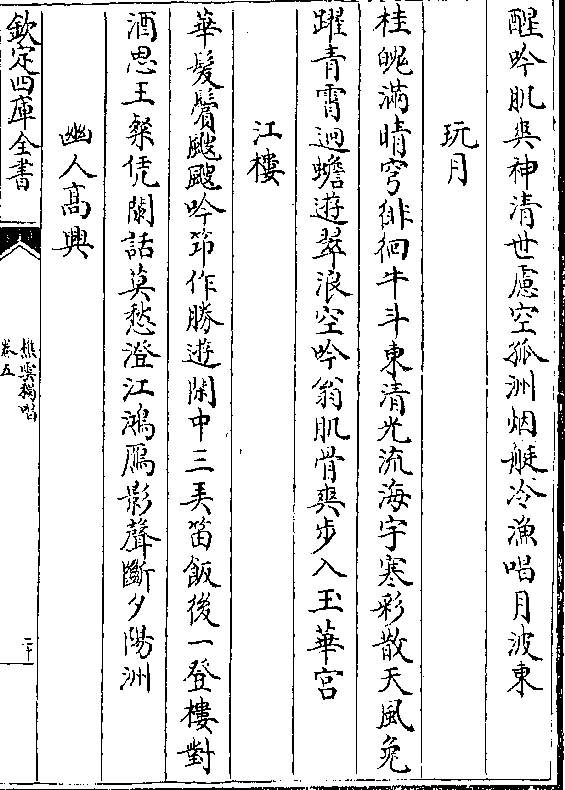 醒吟肌與神清世慮空孤洲烟艇冷漁唱月波東
玩月
桂魄滿晴穹徘徊牛斗東清光流海宇寒彩散天風兔
躍青霄迥蟾遊翠浪空吟翁肌骨爽步入玉華宫
江樓
華髮鬢颼颼吟笻作勝遊閑中三弄笛飯後一登樓對
酒思王粲凭闌話莫愁澄江鴻鴈影聲斷夕陽洲
幽人高興
欽定四庫全書
樵雲獨唱
卷五
二十